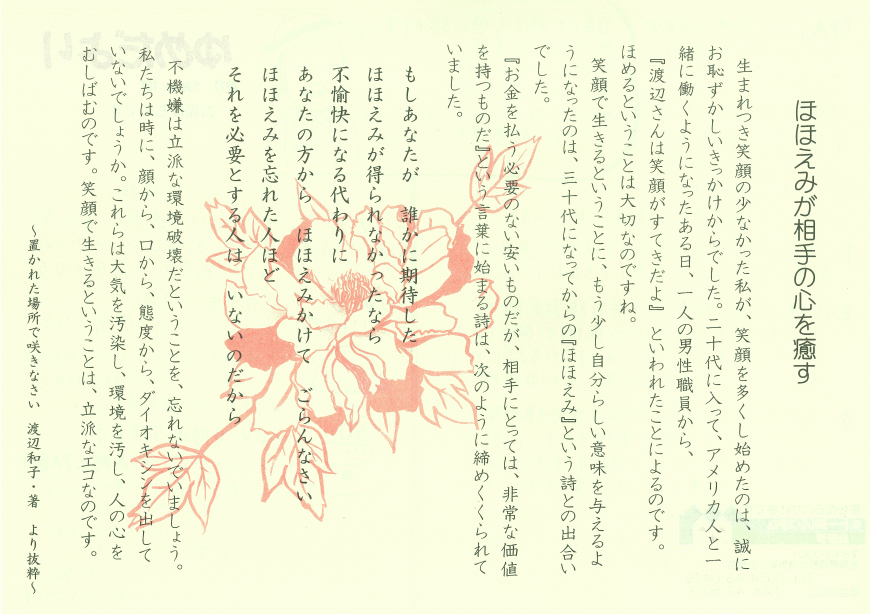 ほほえみが相手の心を癒す
生まれつき笑顔の少なかった私が、笑顔を多くし始めたのは、誠に
お恥ずかしいきっかけからでした。二十代に入って、アメリカ人と一
緒に働くようになったある日、一人の男性職員から、
『渡辺さんは笑顔がすてきだよ』といわれたことによるのです。
ほめるということは大切なのですね。
笑顔で生きるということに、もう少し自分らしい意味を与えるよ
うになったのは、三十代になってからの『ほほえみ』という詩との出合い
でした。
『お金を払う必要のない安いものだが、相手にとっては、非常な価値
を持つものだ』という言葉に始まる詩は、次のように締めくくられて
いました。
もしあなたが 誰かに期待した
ほほえみが得られなかったなら
不愉快になる代わりに
あなたの方から ほほえみかけて ごらんなさい
ほほえみを忘れた人ほど
それを必要とする人は いないのだから
不機嫌は立派な環境破壊だということを、忘れないでいましょう。
私たちは時に、顔から、口から、態度から、ダイオキシンを出して
いないでしょうか。これらは大気を汚染し、環境を汚し、人の心を
むしばむのです。笑顔で生きるということは、立派なエコなのです。
～置かれた場所で咲きなさい 渡辺和子・著 より抜粋～